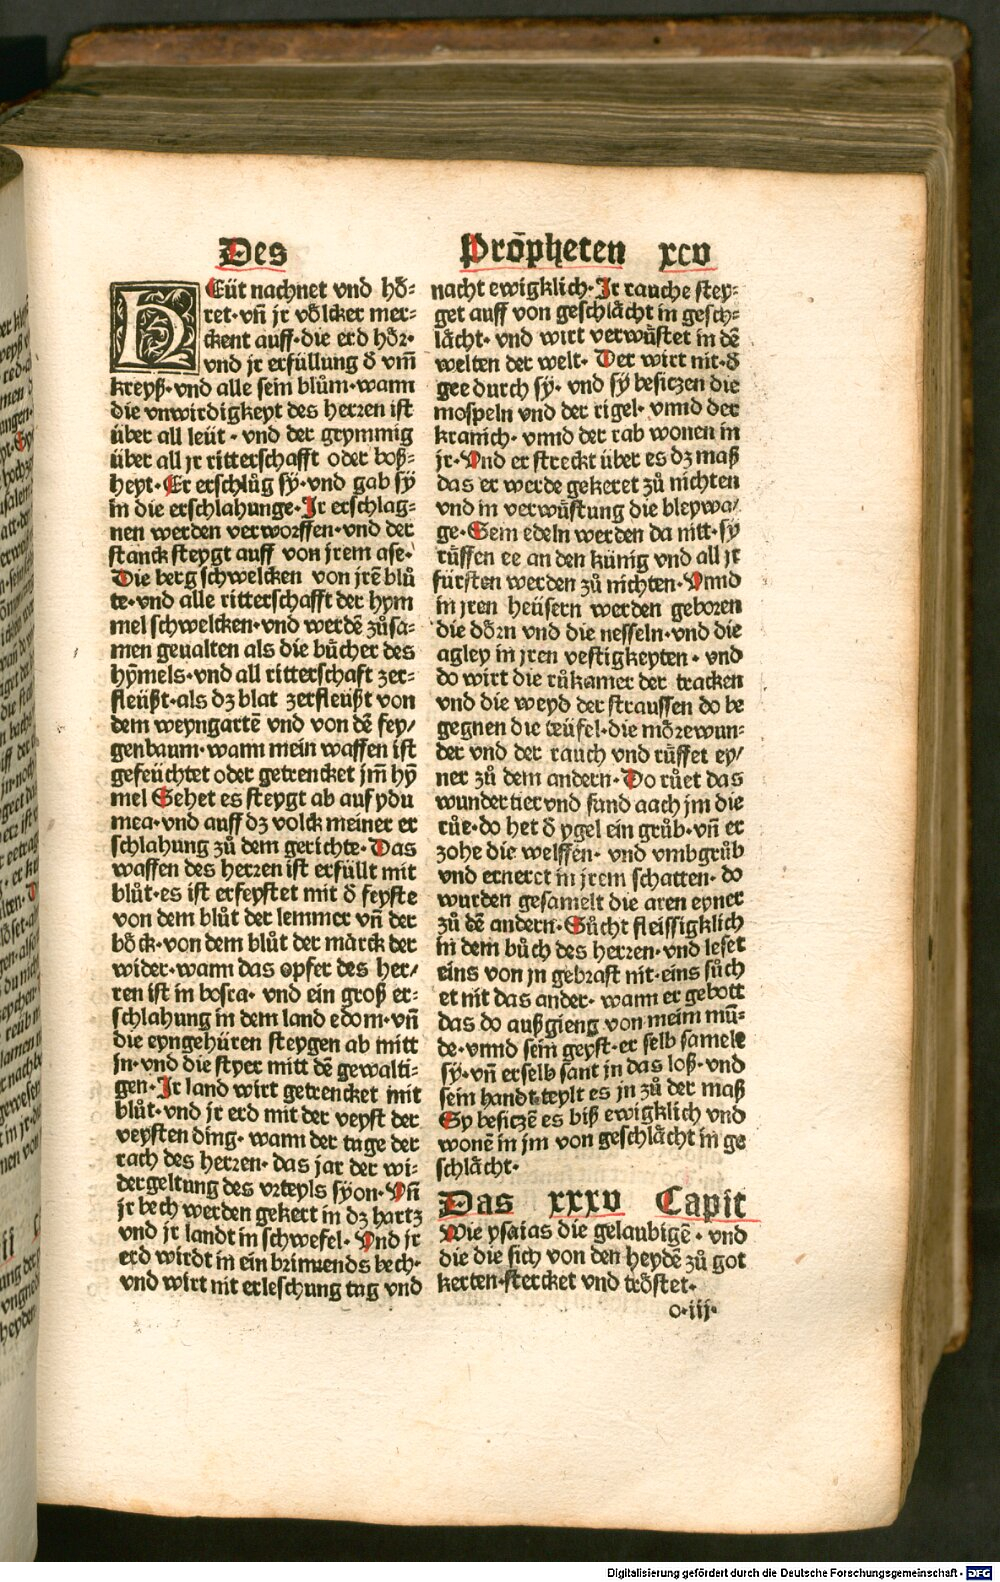 Des Propheten xcv
HEüt nachnet vnd hö-
ret·vñ jr völcker mer-
ckent auff·die erd hör·
vnd jr erfüllung d̕ vm̄
kreyß·vnd alle sein blům·wann
die vnwirdigkeyt des herren ist
über all leüt·vnd der grymmig
über all jr ritterschafft oder boß-
heyt·Er erschlůg sy·vnd gab sy
in die erschlahunge·Ir erschlag-
nen werden verworffen·vnd der
stanck steygt auff von jrem ase·
Die berg schwelcken von jrē blů
te·vnd alle ritterschafft der hym
mel schwelcken·vnd werdē zůsa-
men geualten als die bücher des
hymels·vnd all ritterschaft zer-
fleüßt·als dz blat zerfleüßt von
dem weyngartē vnd von dē fey/
genbaum·wann mein waffen ist
gefeüchtet oder getrencket jm̄ hy̅
mel Sehet es steygt ab auf ydu
mea·vnd auff dz volck meiner er
schlahung zů dem gerichte·Das
waffen des herren ist erfüllt mit
blůt·es ist erfeystet mit d̕ feyste
von dem blůt der lemmer vñ der
böck·von dem blůt der marck der
wider·wann das opfer des her/
ren ist in bosra·vnd ein groß er-
schlahung in dem land edom·vñ
die eyngehüren steygen ab mitt
jn·vnd die styer mitt dē gewalti-
gen·Ir land wirt getrencket mit
blůt·vnd jr erd mit der veyst der
veysten ding·wann der tage der
rach des herren·das jar der wi-
dergeltung des vrteyls syon·Vñ
jr bech werden gekert in dz hartz
vnd jr landt in schwefel·Vnd jr
erd wirdt in ein brinnends bech·
vnd wirt nit erleschung tag vnd
nacht ewigklich·Ir rauche stey-
get auff von geschlächt in gesch-
lächt·vnd wirt verwüstet in dē
welten der welt·Der wirt nit·d̕
gee durch sy·vnd sy besiczen die
mospeln vnd der rigel·vnnd der
kranich·vnnd der rab wonen in
jr·Vnd er streckt über es dz maß
das er werde gekeret zů nichten
vnd in verwüstung die bleywa/
ge·Sein edeln werden da nitt·sy
rüffen ee an den künig vnd all jr
fürsten werden zů nichten·Vnnd
in jren heüsern werden geboren
die dörn vnd die nesseln·vnd die
agley in jren vestigkeyten·vnd
do wirt die růkamer der tracken
vnd die weyd der straussen do be
gegnen die teüfel·die mörewun-
der vnd der rauch vnd rüffet ey/
ner zů dem andern·Do růet das
wundertier vnd fand aach jm die
růe·do het d̕ ygel ein grůb·vñ er
zohe die welffen·vnd vmbgrůb
vnd erneret in jrem schatten·do
wurden gesamelt die aren eyner
zů dē andern·Sůcht fleissigklich
in dem bůch des herren·vnd leset
eins von jn gebrast nit·eins sůch
et nit das ander·wann er gebott
das do außgieng von meim mū-
de·vnnd sein geyst·er selb samele
sy·vñ er selb sant in das loß·vnd
sein handt teylt es jn zů der maß
Sy besiczē es biß ewigklich vnd
wonē in jm von geschlächt in ge
schlächt·
Das xxxv Capit
Wie ysaias die gelaubigē·vnd
die die sich von den heydē zů got
kerten·stercket vnd tröstet·
o·iij·
Digitalisierung gefördert durch die Deutsche Forschungsgemeinschaft - DFG